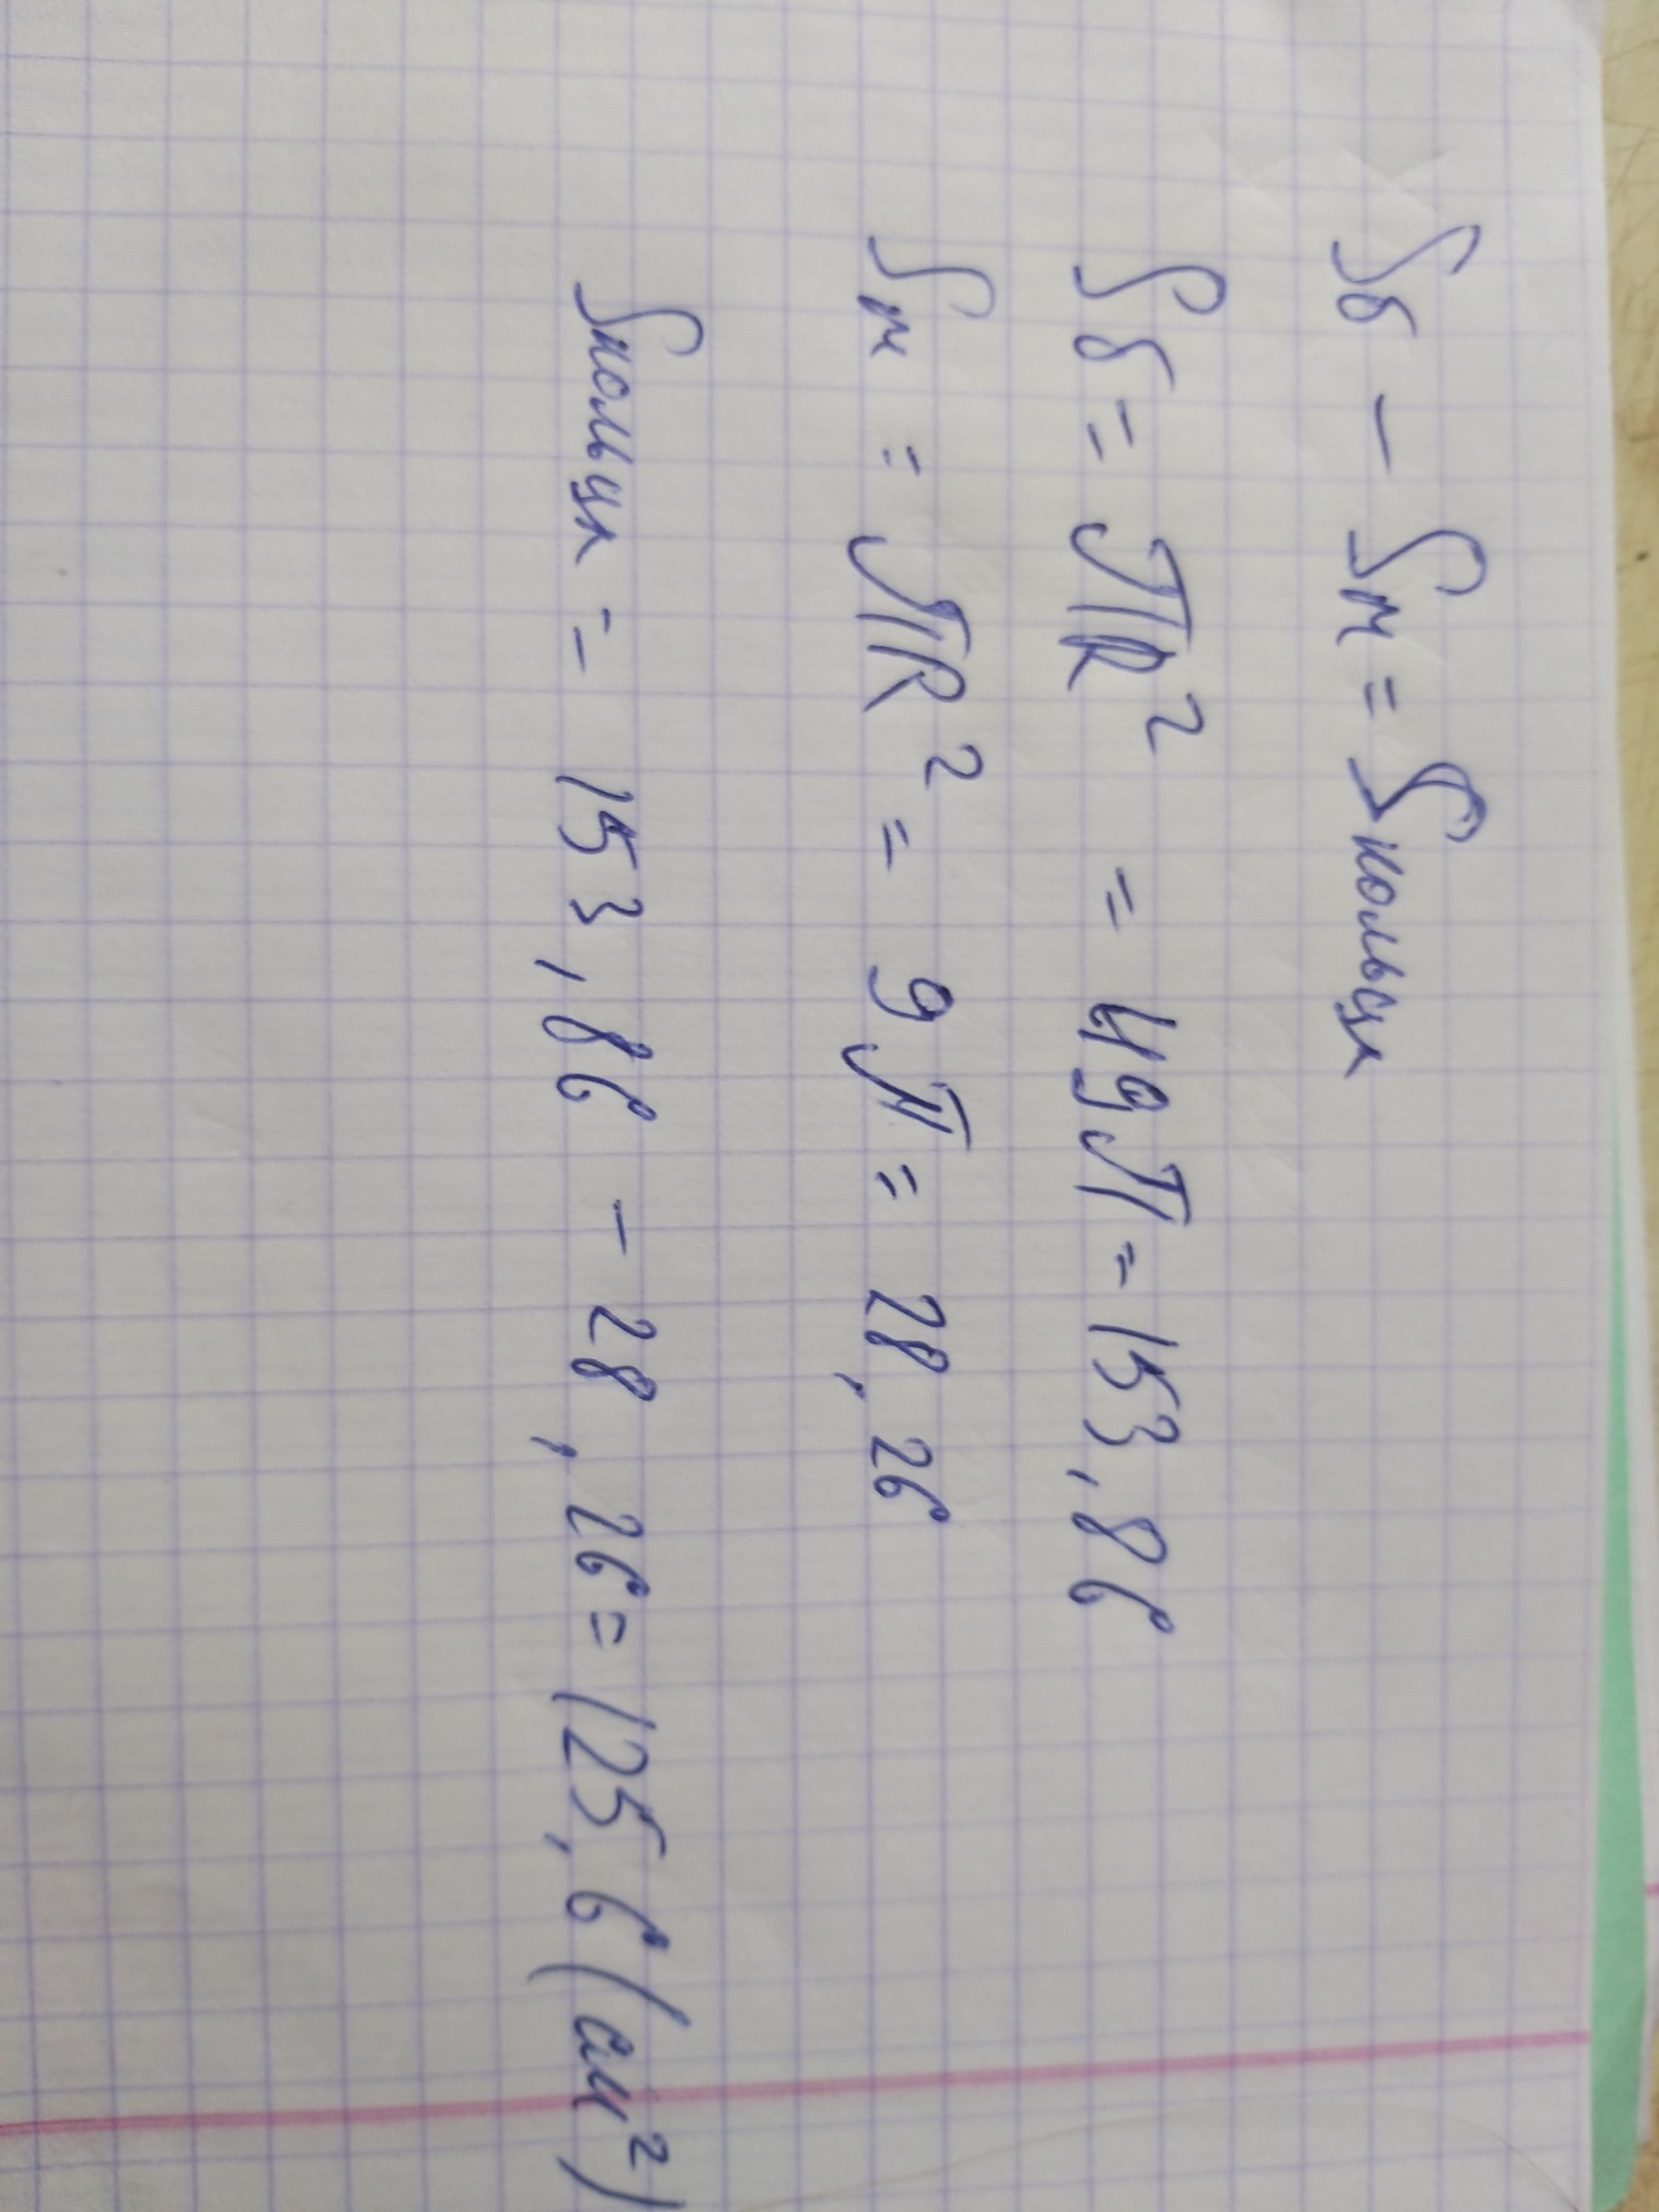 Sб - Sм = Sкольца
Sб = ПR² = 49П = 153,86
Sм = ПR² = 9П = 28,26
Sкольца = 153,86 - 28,26 = 125,6 (см²)